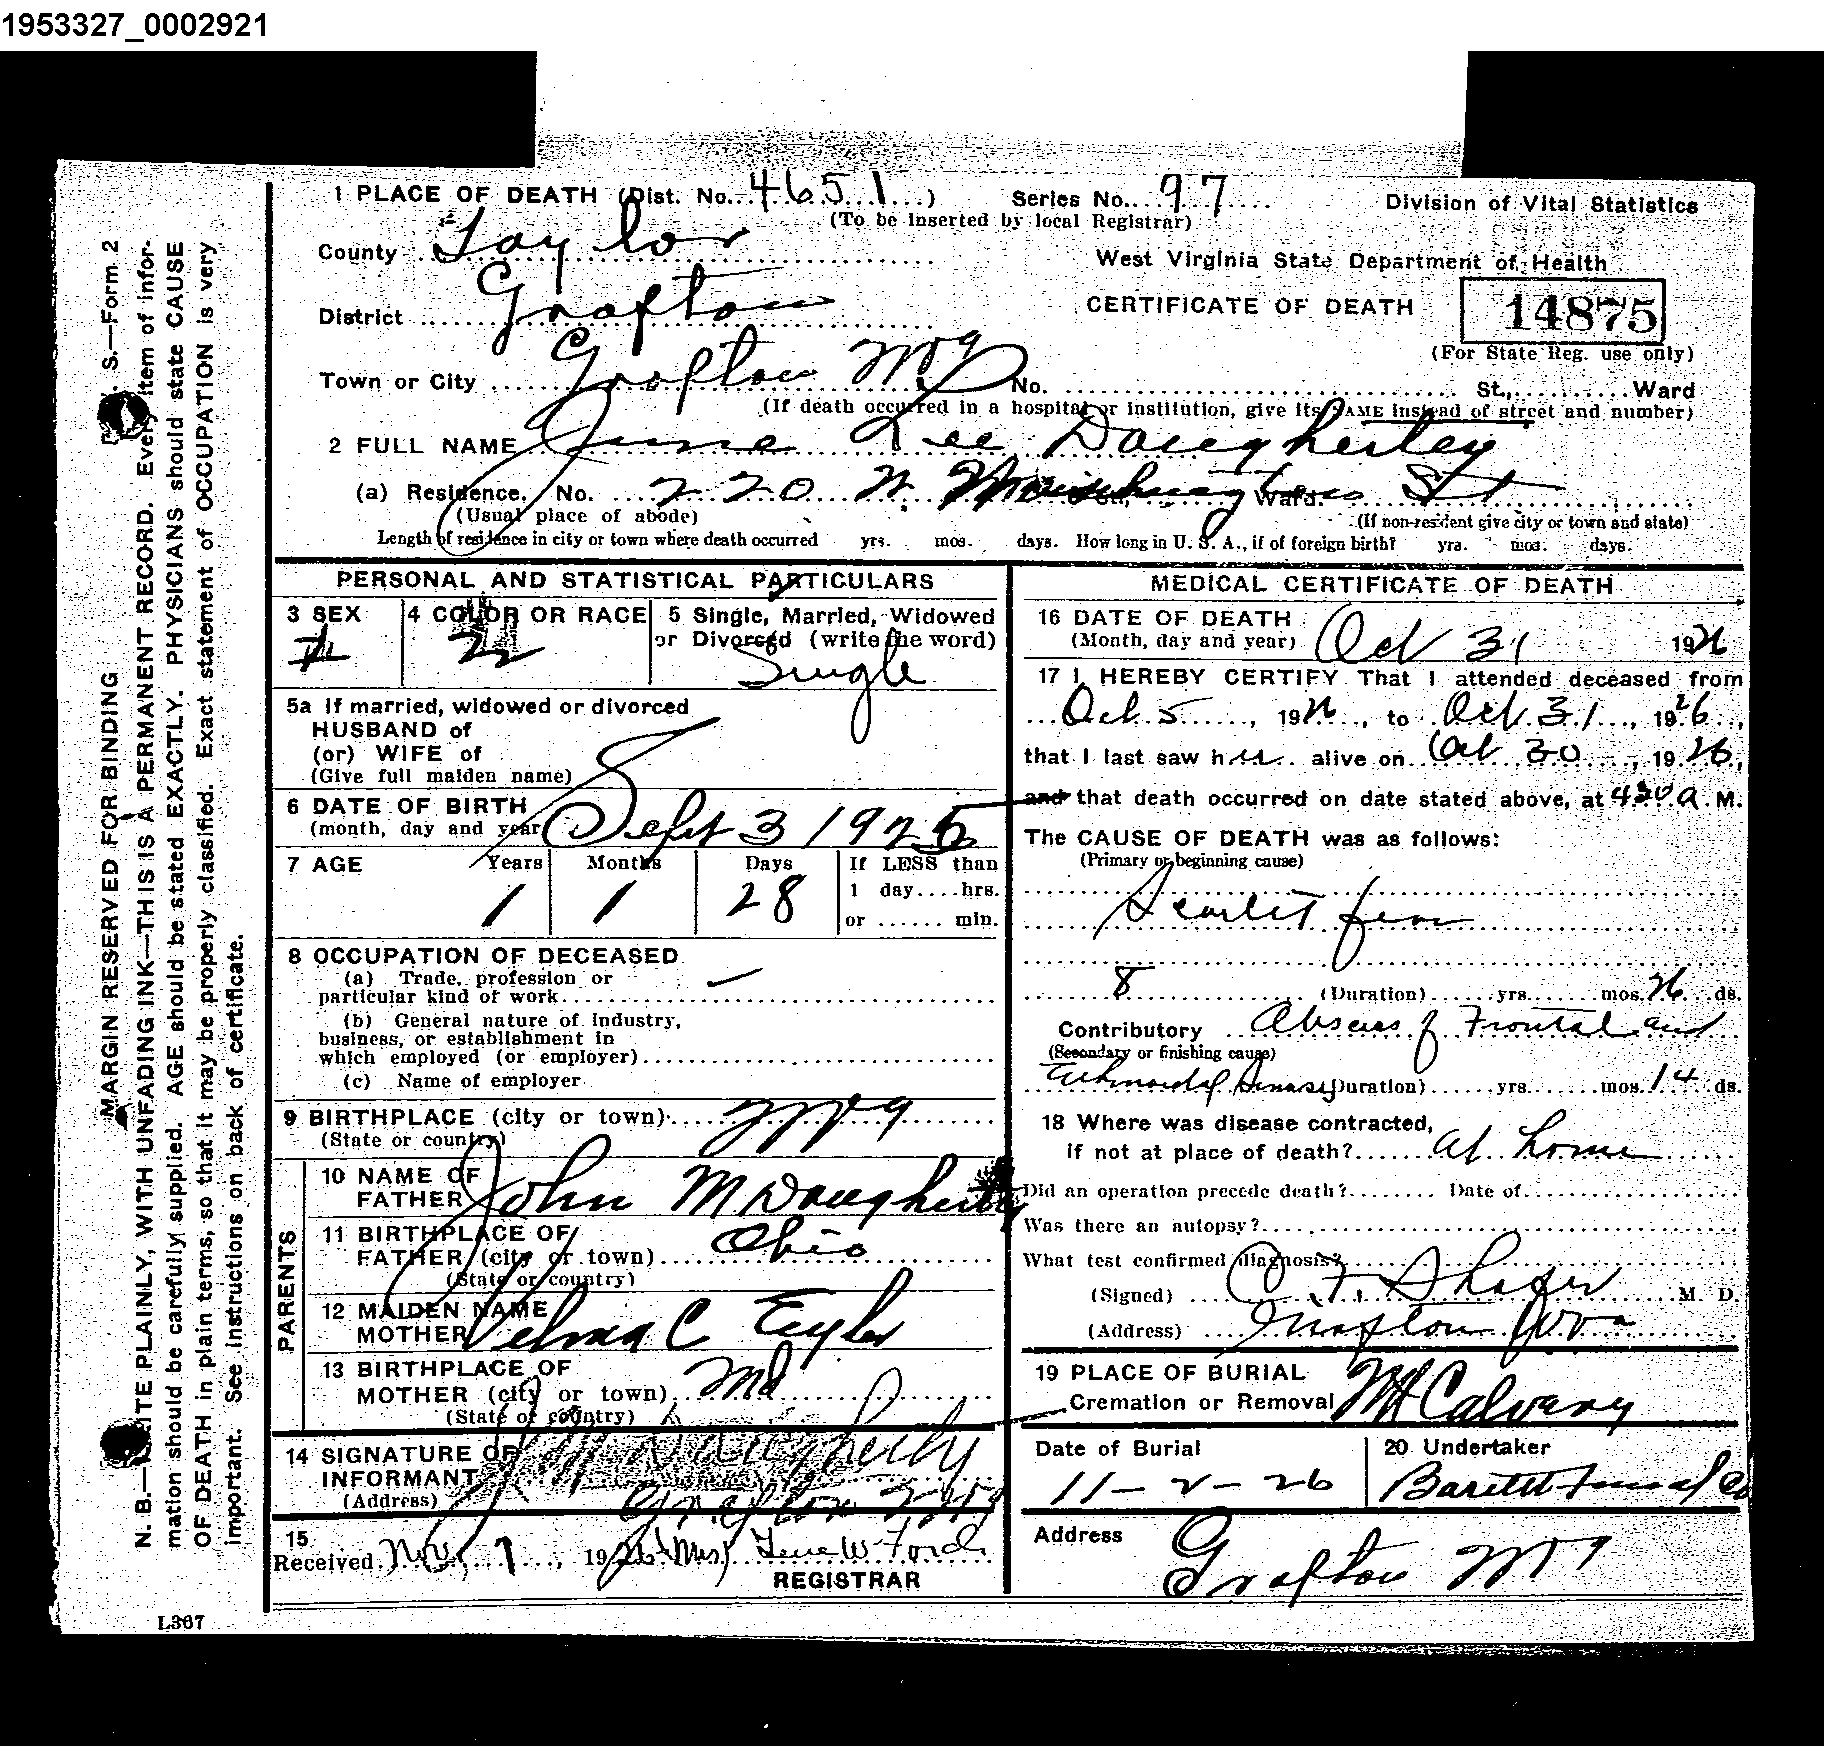 1953327_0002921
1 PLACE OF DEATH (Dist. No. 4651) Series No. 97 Division of Vital Statistics
(To be inserted by local Registrar)
County Taylor
West Virginia State Department of Health
District Grafton
CERTIFICATE OF DEATH 14875
(For State Reg. use only)
Town or City Grafton WVa No. St., Ward
(If death occurred in a hospital or institution, give its NAME instead of street and number)
2 FULL NAME June Lee Daugherty
(a) Residence. No. 220 W. Washington St Ward.
(Usual place of abode) (If non-resident give city or town and state)
Length of residence in city or town where death occurred yrs. mos. days. How long in U. S. A., if of foreign birth? yrs. mos. days.
PERSONAL AND STATISTICAL PARTICULARS
3 SEX
4 COLOR OR RACE
W
5 Single, Married, Widowed
or Divorced (write the word)
Single
5a If married, widowed or divorced
HUSBAND of
(or) WIFE of
(Give full maiden name)
6 DATE OF BIRTH
(month, day and year) Sept 3 1925
7 AGE Years Months Days If LESS than
1 day....hrs.
or ...... min.
1 1 28
8 OCCUPATION OF DECEASED
(a) Trade, profession or
particular kind of work —
(b) General nature of industry,
business, or establishment in
which employed (or employer)
(c) Name of employer
9 BIRTHPLACE (city or town) WVa
(State or country)
PARENTS
10 NAME OF
FATHER John M Daugherty
11 BIRTHPLACE OF
FATHER (city or town) Ohio
(State or country)
12 MAIDEN NAME
MOTHER Velma C
13 BIRTHPLACE OF
MOTHER (city or town) Md
(State or country)
14 SIGNATURE OF
INFORMANT J M Daugherty
(Address) Grafton WVa
15
Received Nov 1, 1926 Mrs Ford
REGISTRAR
MEDICAL CERTIFICATE OF DEATH
16 DATE OF DEATH
(Month, day and year) Oct 31 1926
17 I HEREBY CERTIFY That I attended deceased from
Oct 5, 1926, to Oct 31, 1926,
that I last saw her alive on Oct 30, 1926,
and that death occurred on date stated above, at 430 a. M.
The CAUSE OF DEATH was as follows:
(Primary or beginning cause)
Scarlet fever
8 (Duration) yrs. mos. 26 ds.
Contributory Abscess of Frontal and
(Secondary or finishing cause)
Ethmoidal Sinuses (Duration) yrs. mos. 14 ds.
18 Where was disease contracted,
if not at place of death? At home
Did an operation precede death? Date of
Was there an autopsy?
What test confirmed diagnosis?
(Signed) C. F. Shafer M. D.
(Address) Grafton WVa
19 PLACE OF BURIAL
Cremation or Removal Mt Calvary
Date of Burial
11-2-26
20 Undertaker
Address
Grafton WVa
MARGIN RESERVED FOR BINDING S.—Form 2
N. B.—WRITE PLAINLY, WITH UNFADING INK—THIS IS A PERMANENT RECORD. Every item of infor-
mation should be carefully supplied. AGE should be stated EXACTLY. PHYSICIANS should state CAUSE
OF DEATH in plain terms, so that it may be properly classified. Exact statement of OCCUPATION is very
important. See instructions on back of certificate.
L367